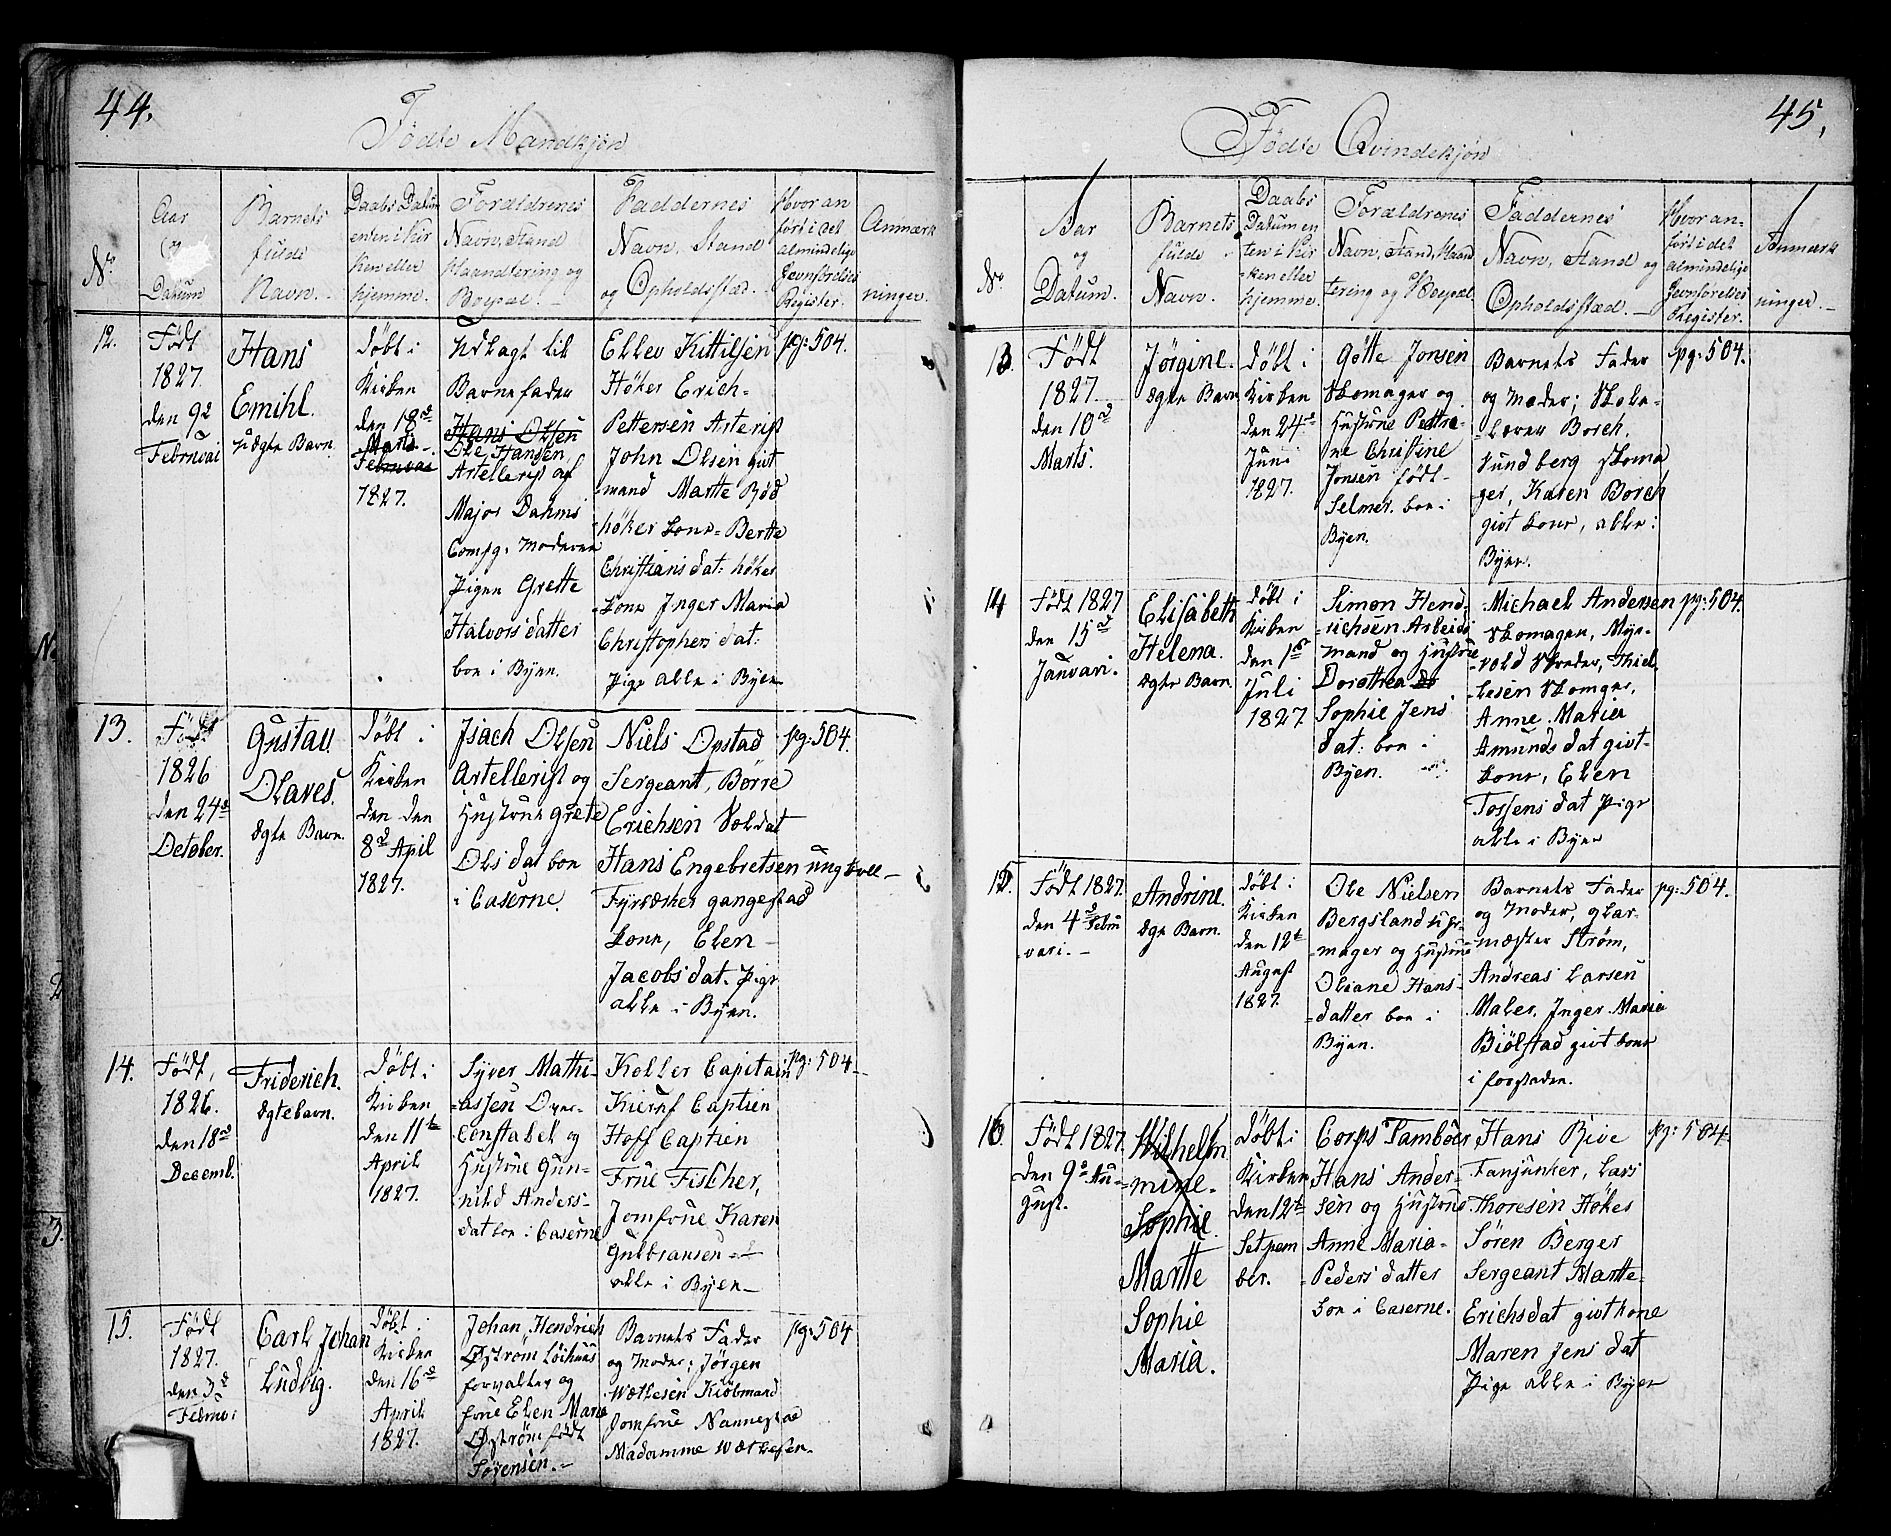 44.
Fødte Mandkjøn
No
Aar
og
Datum
Barnets
fulde
Navn.
Daabs Datum
enten i Kir
ken eller
hjemme.
Forældrenes
Navn, Stand
Haandtering og
Boepæl.
Faddernes
Navn, Stand
og Opholdsstæd.
Hvor an
ført i det
almindelige
Jevnførelses
Register.
Anmærk
ninger.
12.
Født
1827.
den 92
Februai
Hans
Emihl.
uægte Barn.
døbt i
Kirken
den 18de
Marts
Februai
1827.
Udlagt til
Barnefader
Hans Olsen
Ole Hansen
Artellerist af
Major Dahms
Compg. Moderen
Pigen Grette
Halvorsdatter
boe i Byen.
Ellev Kittilsen
Höker Erich
Pettersen Arterist
John Olsen givt
mand Martte Röd
höker kone Bertte
Christiansdat: höker
kone Inger Maria
Christophersdat:
Pige alle i Byen
pg: 504.
13.
Født
1826
den 24de
October.
Gustav
Olaves.
ægte Barn.
døbt i
Kirken
den den
8de Apil
1827.
Isach Olsen
Artellerist og
Hustrue Grete
Olsdat boe
i Caserne.
Niels Opstad
Sergeant, Börre
Erichsen Soldat
Hans Engebretsen ung karl
Fyrværker gangestad
kone, Elen
Jacobsdat. Pige
alle i Byen.
pg. 504.
14.
Født,
1826.
den 18de
Decemb.
Friderich.
ægte barn.
døbt i
Kirken
den 11te
April
1827.
Syver Mathi-
assen Over-
Constabel og
Hustrue Gun-
nild Anders
dat boe i Caserne
Koller Capitain
Kierulf Captien
Hoff Captien
Frue Fischer,
Jomfrue Karen
Gulbransen
alle i Byen
pg: 504
15.
Født
1827.
den 3de
Februi
Carl Johan
Ludvig.
døbt i
Kirken
den 16de
April
1827.
Johan Hendrich
Øström
forvalter og
frue Elen Marie
Øström født
Sörensen.
Barnets Fader
og Moder; Jörgen
Wettesen Kiöbmand
Jomfrue Nannestad
Madamme Wettesen.
pg: 504
45,
Fødte Qvindekjøn
No
Aar
og
Datum.
Barnets
fulde
Navn.
Daabs
Datum en
ten i Kir
ken eller
hjemme.
Forældrenes
Navn, Stand, Haand
tering og Boepæl.
Faddernes
Navn, Stand og
Opholdsstæd.
Hvor an-
ført i det
almindelige
Jevnførelses
Register.
Anmærk
ninger.
13.
Födt
1827.
den 10de
Marts.
Jörgine.
ægte Barn
døbt i
Kirken
den 24de
Juni
1827.
Götte Jonsen
Skomager og
Hustrue Pettre-
ne Christine
Jonsen født
Selmer. boe i
Byen.
Barnets Fader
og Moder; Skole-
lærer Borch,
Sundberg Skoma
ger, Karen Borch
givt kone, alle i
Byen.
pg: 504.
14
Født 1827
den 15de
Januari.
Elisabeth
Helena.
ægte Barn
døbt i
Kirken
den 1ste
Juli
1827
Simon Hend-
richsen Arbeids
mand og Hustrue
Dorothea
Sophie Jens
dat: boe i
Byen.
Michael Andersen
Skomager, Myr-
vold Skreder, Thiel
lesen Skomger,
Anne Maria
Amundsdat givt
kone, Elen
Tossensdat Pige
alle i Byen
pg: 504.
15.
Födt 1827.
den 4de Febru
vari.
Andrine.
ægte Barn.
døbt i
Kirken
den 12te
August
1827.
Ole Nielsen
Bergsland
mager og Hustrue
Oleane Hans-
datter boe i
Byen.
Barnets Fader
og Moder, glar-
mæster Ström,
Andreas Larsen
Maler, Inger Maria
Biölstad givt kone
i forstaden.
pg: 504.
16.
Födt 1827.
den 9de Au-
gust.
Wilhelm
mine.
Sophie.
Martte
Sophie
Maria.
døbt i
Kirken
den 12te
Setpem
ber.
Corps Tambör
Hans Ander-
sen og Hustrue
Anne Maria
Pedersdatter
boe i Caserne.
Hans Rive
Fanjunker, Lars
Thoresen Höker
Sören Berger
Sergeant Martte
Erichsdat givt kone
Maren Jensdat
Pige alle i Byen
pg: 504.